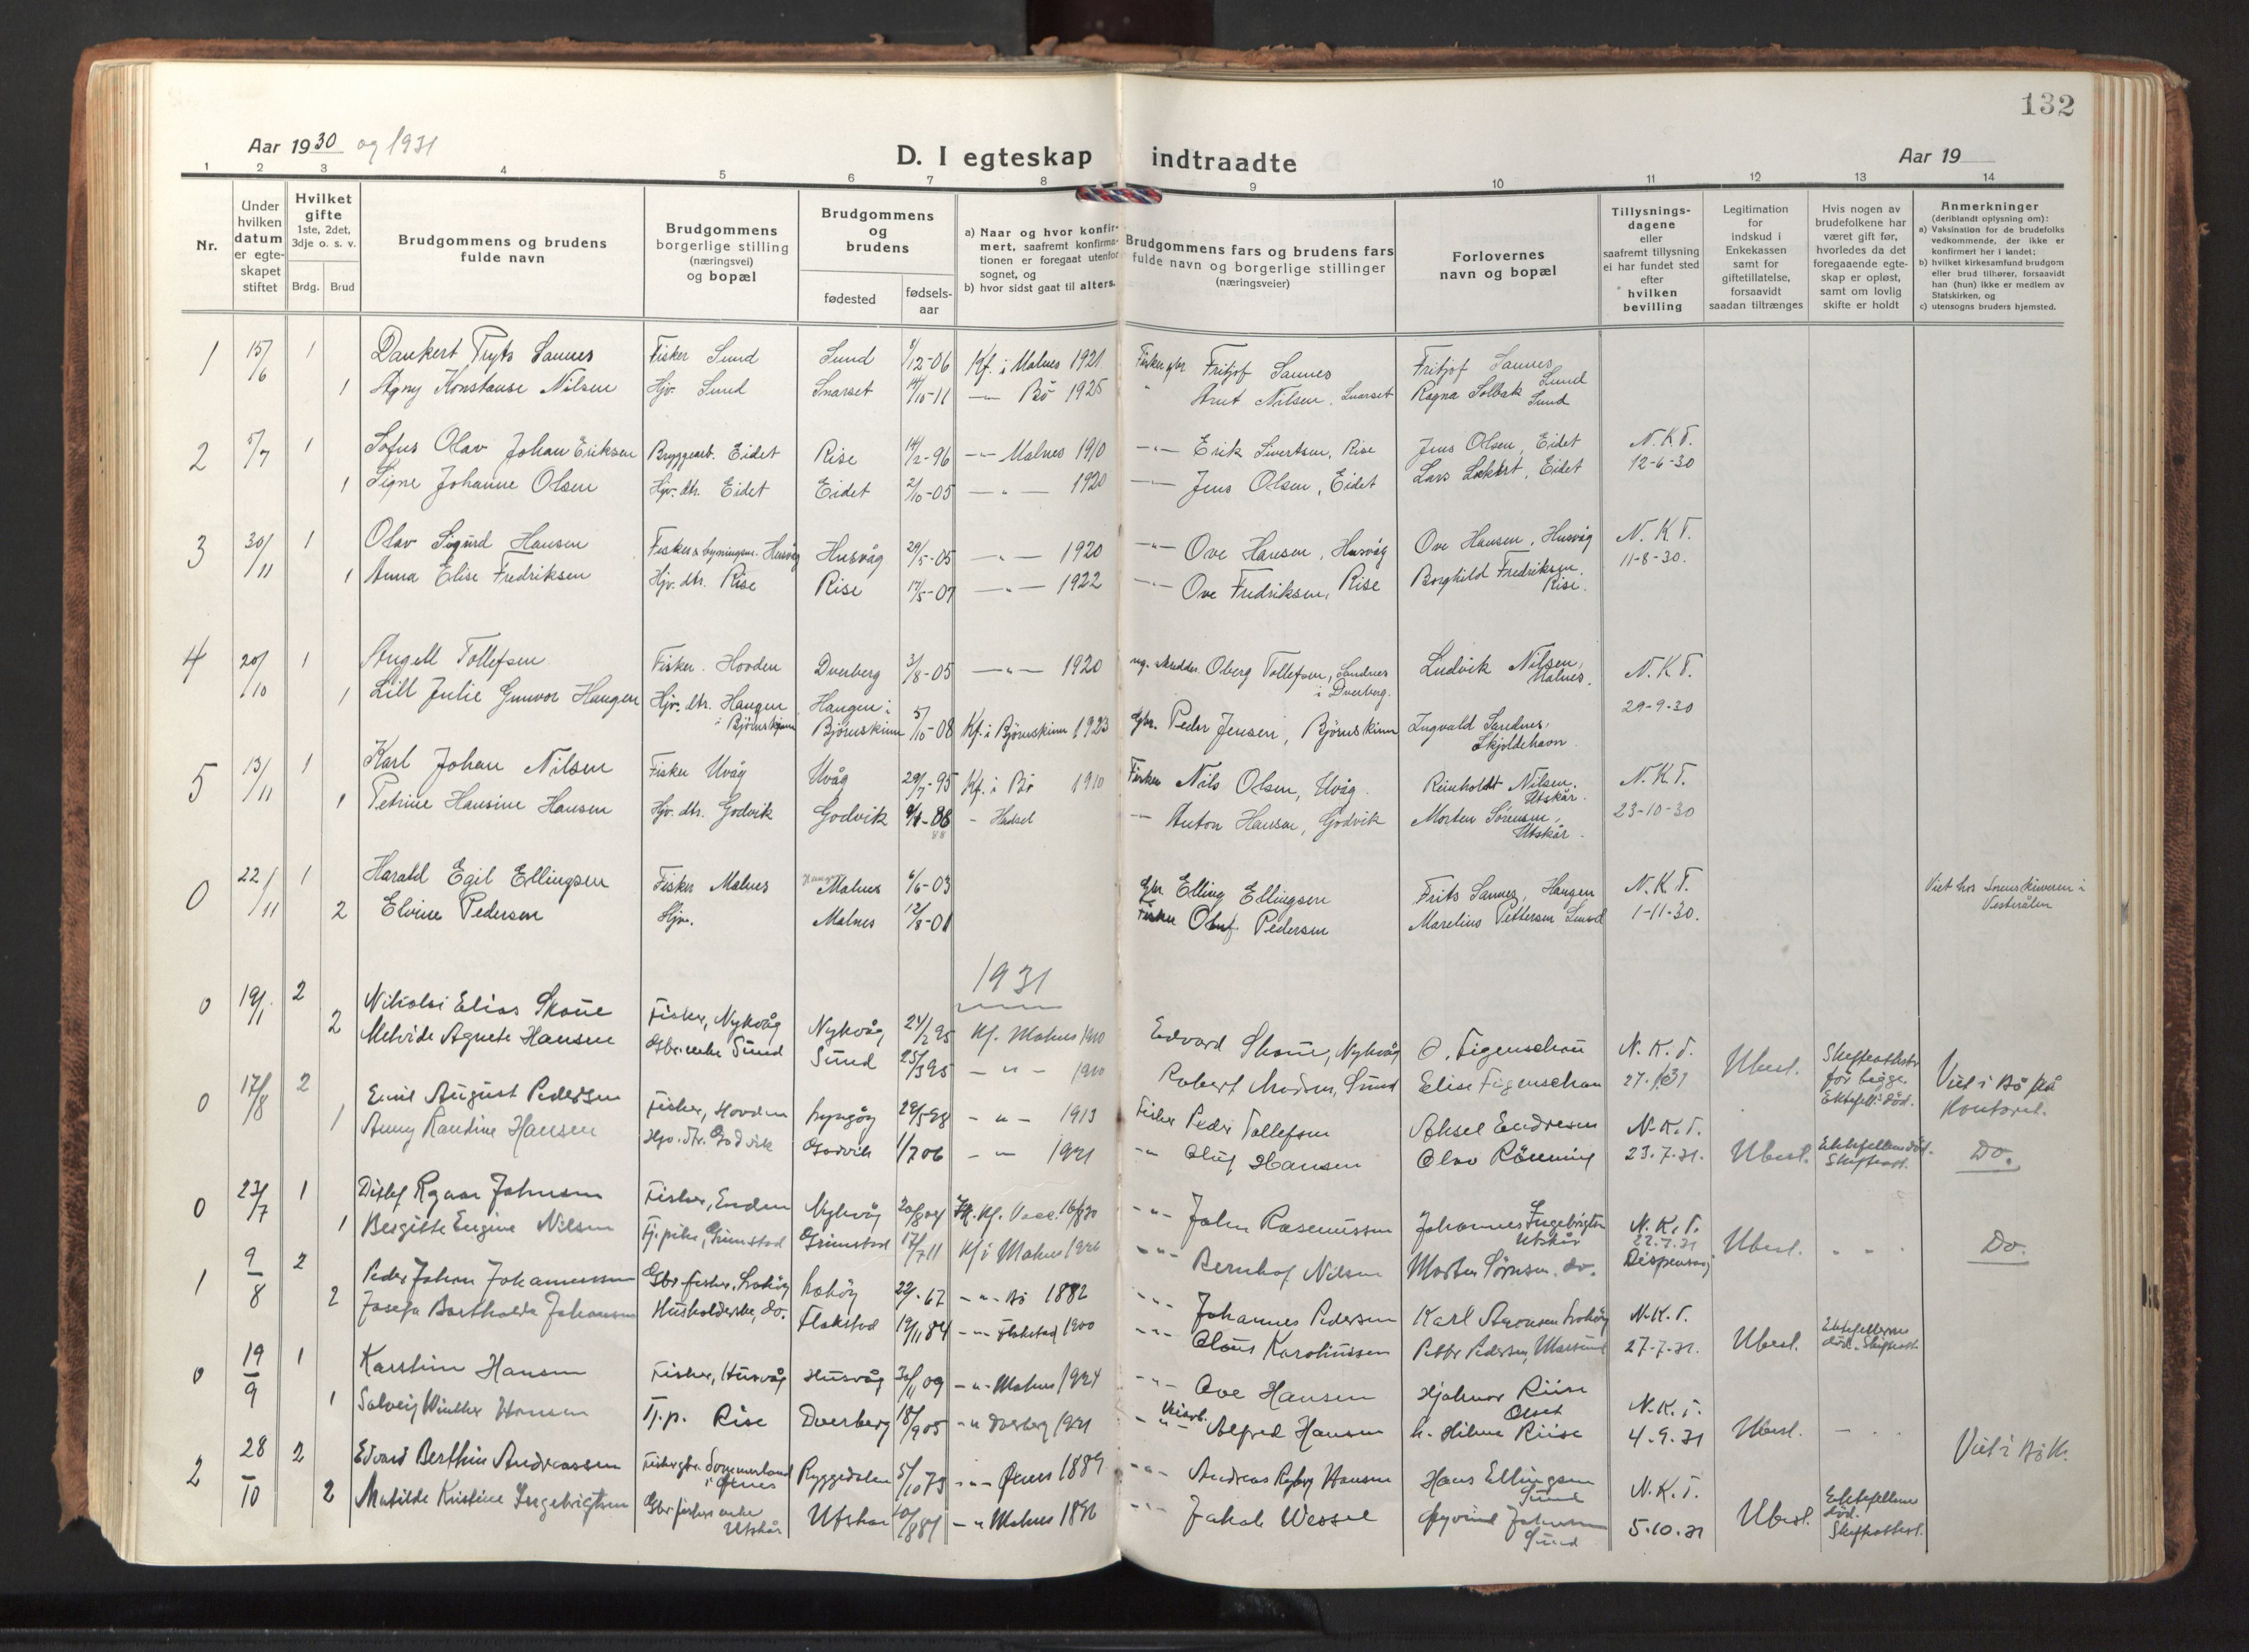 132
Aar 1930 og 1931
D. I egteskap indtraadte
Aar 19
1 2 3 4 5 6 7 8 9 10 11 12 13 14
Nr.
Under hvilken datum er egte-skapet stiftet
Hvilket gifte 1ste, 2det, 3dje o. s. v.
Brdg. Brud
Brudgommens og brudens fulde navn
Brudgommens borgerlige stilling (næringsvei) og bopæl
Brudgommens og brudens
fødested
fødsels-aar
a) Naar og hvor konfir-mert, saafremt konfirma-tionen er foregaat utenfor sognet, og
b) hvor sidst gaat til alters.
Brudgommens fars og brudens fars fulde navn og borgerlige stillinger (næringsveier)
Forlovernes navn og bopæl
Tillysnings-dagene eller saafremt tillysning ei har fundet sted efter hvilken bevilling
Legitimation for indskud i Enkekassen samt for giftetillatelse, forsaavidt saadan tiltrænges
Hvis nogen av brudefolkene har været gift før, hvorledes da det foregaaende egte-skap er opløst, samt om lovlig skifte er holdt
Anmerkninger (deriblandt oplysning om):
a) Vaksination for de brudefolks vedkommende, der ikke er konfirmert her i landet;
b) hvilket kirkesamfund brudgom eller brud tilhører, forsaavidt han (hun) ikke er medlem av Statskirken, og
c) utensogns bruders hjemsted.
1 15/6 1 Dankert Tryts Sannes Fisker Sund Sund 9/12-06 Kf. i Malnes 1921 Fisker gbr Fritjof Sannes Fritjof Sannes, Sund
1 Agny Konstanse Nilsen Hjv. Sund Snarset 14/10-11 -"- Bö 1925 " Arnt Nilsen, Snarset Ragna Solbak Sund
2 5/7 1 Sofus Olav Johan Eriksen Bryggearb. Eidet Rise 14/2-96 -"- Malnes 1910 -"- Erik Sivertsen, Rise Jens Olsen, Eidet N.K.T.
1 Signe Johanne Olsen Hjv. dtr. Eidet Eidet 2/10-05 -"- 1920 -"- Jens Olsen, Eidet Lars Lockert, Eidet 12-6-30
3 30/11 1 Olav Sigurd Hansen Fisker & bygningsm. Husvåg Husvåg 29/5-05 -"- 1920 -"- Ove Hansen, Husvåg Ove Hansen, Husvåg N.K.T.
1 Anna Elise Fredriksen Hjv. dtr. Rise Rise 17/5-07 -"- 1922 -"- Ove Fredriksen, Rise Borghild Fredriksen, Rise. 11-8-30.
4 20/10 1 Angell Tollefsen Fisker Hovden Dverberg 3/8-05 -"- 1920 Oberg Tollefsen, Sandnes i Dverberg. Ludvik Nilsen, Malnes. N.K.T.
1 Lill Julie Gunvor Haugen Hjv. dtr. Haugen i Bjørnskinn Haugen i Bjørnskinn 5/10-08 Kf. i Bjørnskinn 1923 Gbr. Peder Jensen, Bjørnskinn Ingvald Sandnes, Skjoldehavn 29-9-30
5 13/11 1 Karl Johan Nilsen Fisker Uvåg Uvåg 29/7-95 Kf. i Bö 1910 Fisker Nils Olsen, Uvåg Reinholdt Nilsen, Utskår. N.K.T.
1 Petrine Hansine Hansen Hjv. dtr. Godvik Godvik 88 - Hadsel -"- Anton Hansen, Godvik Morten Sørensen, Utskår. 23-10-30
0 22/11 1 Harald Egil Ellingsen Fisker Malnes Malnes 6/6-03 Gbr. Elling Ellingsen Frits Sannes, Haugen N.K.T. Viet hos Sorenskriveren i Vesterålen
2 Elvine Pedersen Hjv. Malnes 12/8-01 Fisker Oluf Pedersen Marelius Pettersen Sund 1-11-30.
1931
0 19/1 2 Nikolai Elias Skoue Fisker, Nykvåg Nykvåg 24/2 95 Kf. Malnes 1910 Edvard Skoue, Nykvåg O. Figenschou N.K.T. Ubesl. Skifteattest for begge. Ektefell. död. Viet i Bö på kontoret.
2 Melvide Agnete Hansen Gbr. enke Sund Sund 25/3 95 - " - 1910 Robert Madsen, Sund Elise Figenschou
0 17/8 2 Emil August Pedersen Fisker, Hovden 29/5 98 - " - 1913 Fisker Peder Tollefsen Aksel Endresen N.K.T. Ubesl. Ektefellen död. Skifteatt. Do.
1 Anny Randine Hansen Hjv. dtr. Godvik Godvik 1/7 06 - " - 1921 -"- Oluf Hansen Olav Rönning 23.7.31.
0 23/7 1 Ditlef Ragnar Johnsen Fisker, Nykvåg 20/8 04 -"- John Rasmussen Johannes Ingebrigtsen Utskår N.K.T. 22.7.31 Ubesl. - - - Do.
1 Bergitte Eugine Nilsen Tj. pike, Grimstad Grimstad 17/7 11 Kf i Malnes 1926 -"- Bernhof Nilsen Morten Sørensen. do. Dispensasj
1 9/8 2 Peder Johan Johannessen Gbr. fisker, 67 -"- Bö 1882 -"- Johannes Pedersen Karl Aronsen N.K.T. Ubesl. Ektefellerne död. Skifteatt.
2 Josefa Bartholda Johansen Husholderske, do. Flakstad 19/11 84 -"- Flakstad 1900 -"- Claus Karolinssen Petter Pedersen, 27-7-31.
0 19/9 1 Karstein Hansen Fisker, Husvåg Husvåg 30/11 09 -"- Malnes 1924 -"- Ove Hansen Hjalmar Riise N.K.T. Ubesl. - - -
1 Solveig Winther Hansen Tj.p. Rise Dverberg 18/9 05 -" Dverberg 1921 -"- Alfred Hansen h. Hilma Riise 4.9.31
2 28/10 2 Edvard Berthin Andreassen Fisker gbr. Sommerland i Öxnes Ryggedalen 5/10 73 -"- Öxnes 1889 -"- Andreas Hansen Hans Ellingsen Sund N.K.T. Ubesl. Ektefellene död. Skifteattest. Viet i Bö K.
2 Matilde Kristine Ingebrigtsen Gbr fiskers enke Utskår Utskår -" Malnes 1896 -"- Jakob Wessel Øyvind Johansen Sund 5.10.31